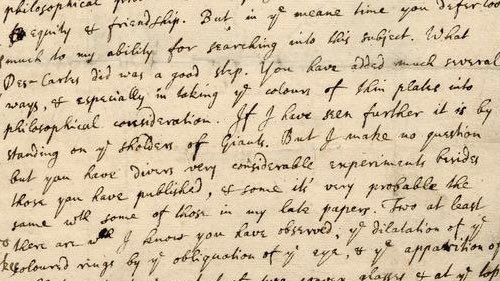 philosophical
to equity & friendship. But in yᵉ meane time you defer too
much to my ability for searching into this subject. What
Des-Cartes did was a good step. You have added much several
ways, & especially in taking yᵉ colours of thin plates into
philosophical consideration. If I have seen further it is by
standing on yᵉ sholders of Giants. But I make no question
but you have divers very considerable experiments besides
those you have published, & some it's very probable the
same wᵗʰ some of those in my late papers. Two at least
there are wᶜʰ I know you have observed, yᵉ dilatation of yᵉ
coloured rings by yᵉ obliquation of yᵉ eye, & yᵉ apparition of
glasses & at yᵉ top